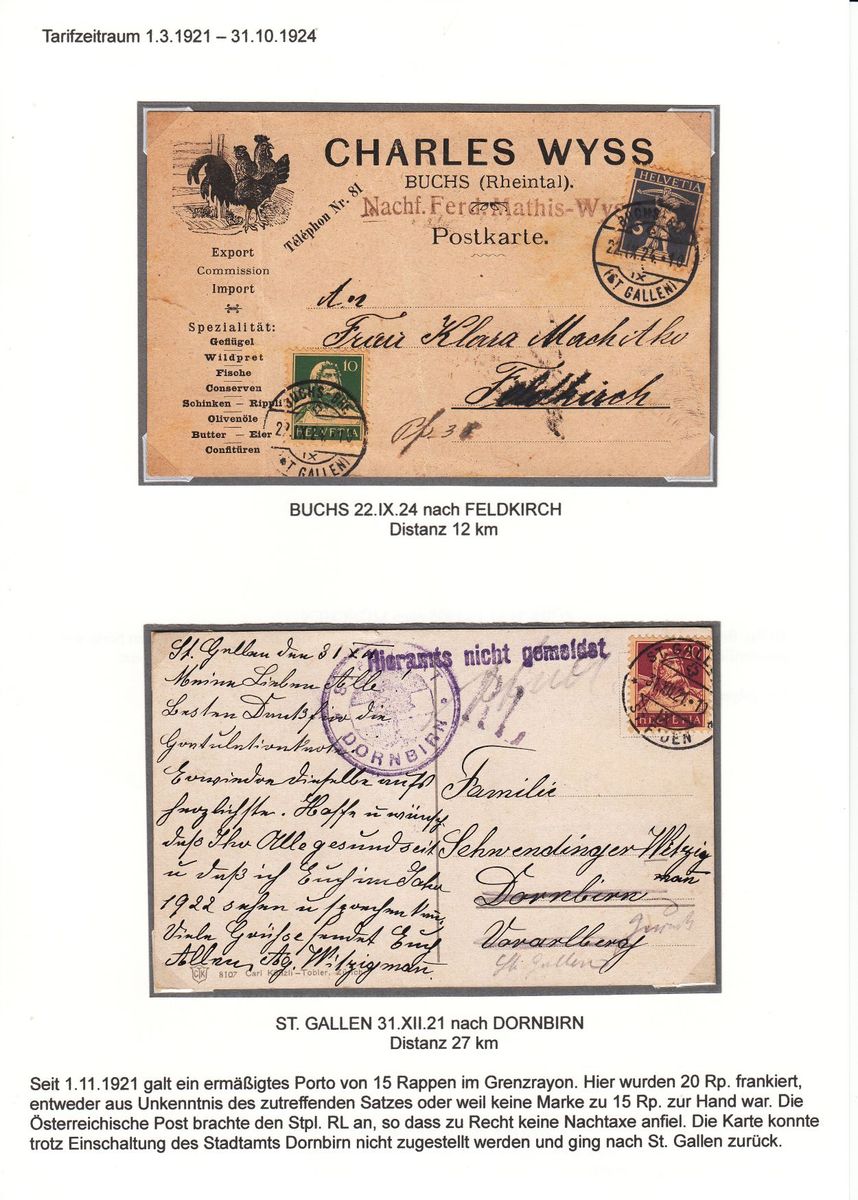 Tarifzeitraum 1.3.1921 – 31.10.1924
CHARLES WYSS
BUCHS (Rheintal).
Téléphon Nr. 81
Nachf. Ferd. Mathis-Wyss
Postkarte.
HELVETIA
5
BUCHS
22.IX.24
IX
(ST GALLEN)
Export
Commission
Import
Spezialität:
Geflügel
Wildpret
Fische
Conserven
Schinken – Rippli
Olivenöle
Butter – Eier
Confitüren
An
Frau Klara Machitko
Feldkirch
10
HELVETIA
BUCHS
IX
(ST GALLEN)
BUCHS 22.IX.24 nach FELDKIRCH
Distanz 12 km
St. Gallen den 31 XII
Meine Lieben Alle!
Besten Dank für die
Gratulationskarte
Erwiedre dieselbe aufs
herzlichste. Hoffe u wünsch
daß Ihr Alle gesund seit
u daß ich Euch im Jahr
1922 sehen u sprechen kan.
Viele Grüße sendet Euch
Allen, Ag. Witzigman.
CK 8107 Carl Künzli-Tobler, Zürich
Hieramts nicht gemeldet
DORNBIRN
RL
HELVETIA
ST. GALLEN
31.XII.21
Familie
Schwendinger Witzig
man
Dornbirn
Vorarlberg
Zurück
St. Gallen
ST. GALLEN 31.XII.21 nach DORNBIRN
Distanz 27 km
Seit 1.11.1921 galt ein ermäßigtes Porto von 15 Rappen im Grenzrayon. Hier wurden 20 Rp. frankiert,
entweder aus Unkenntnis des zutreffenden Satzes oder weil keine Marke zu 15 Rp. zur Hand war. Die
Österreichische Post brachte den Stpl. RL an, so dass zu Recht keine Nachtaxe anfiel. Die Karte konnte
trotz Einschaltung des Stadtamts Dornbirn nicht zugestellt werden und ging nach St. Gallen zurück.